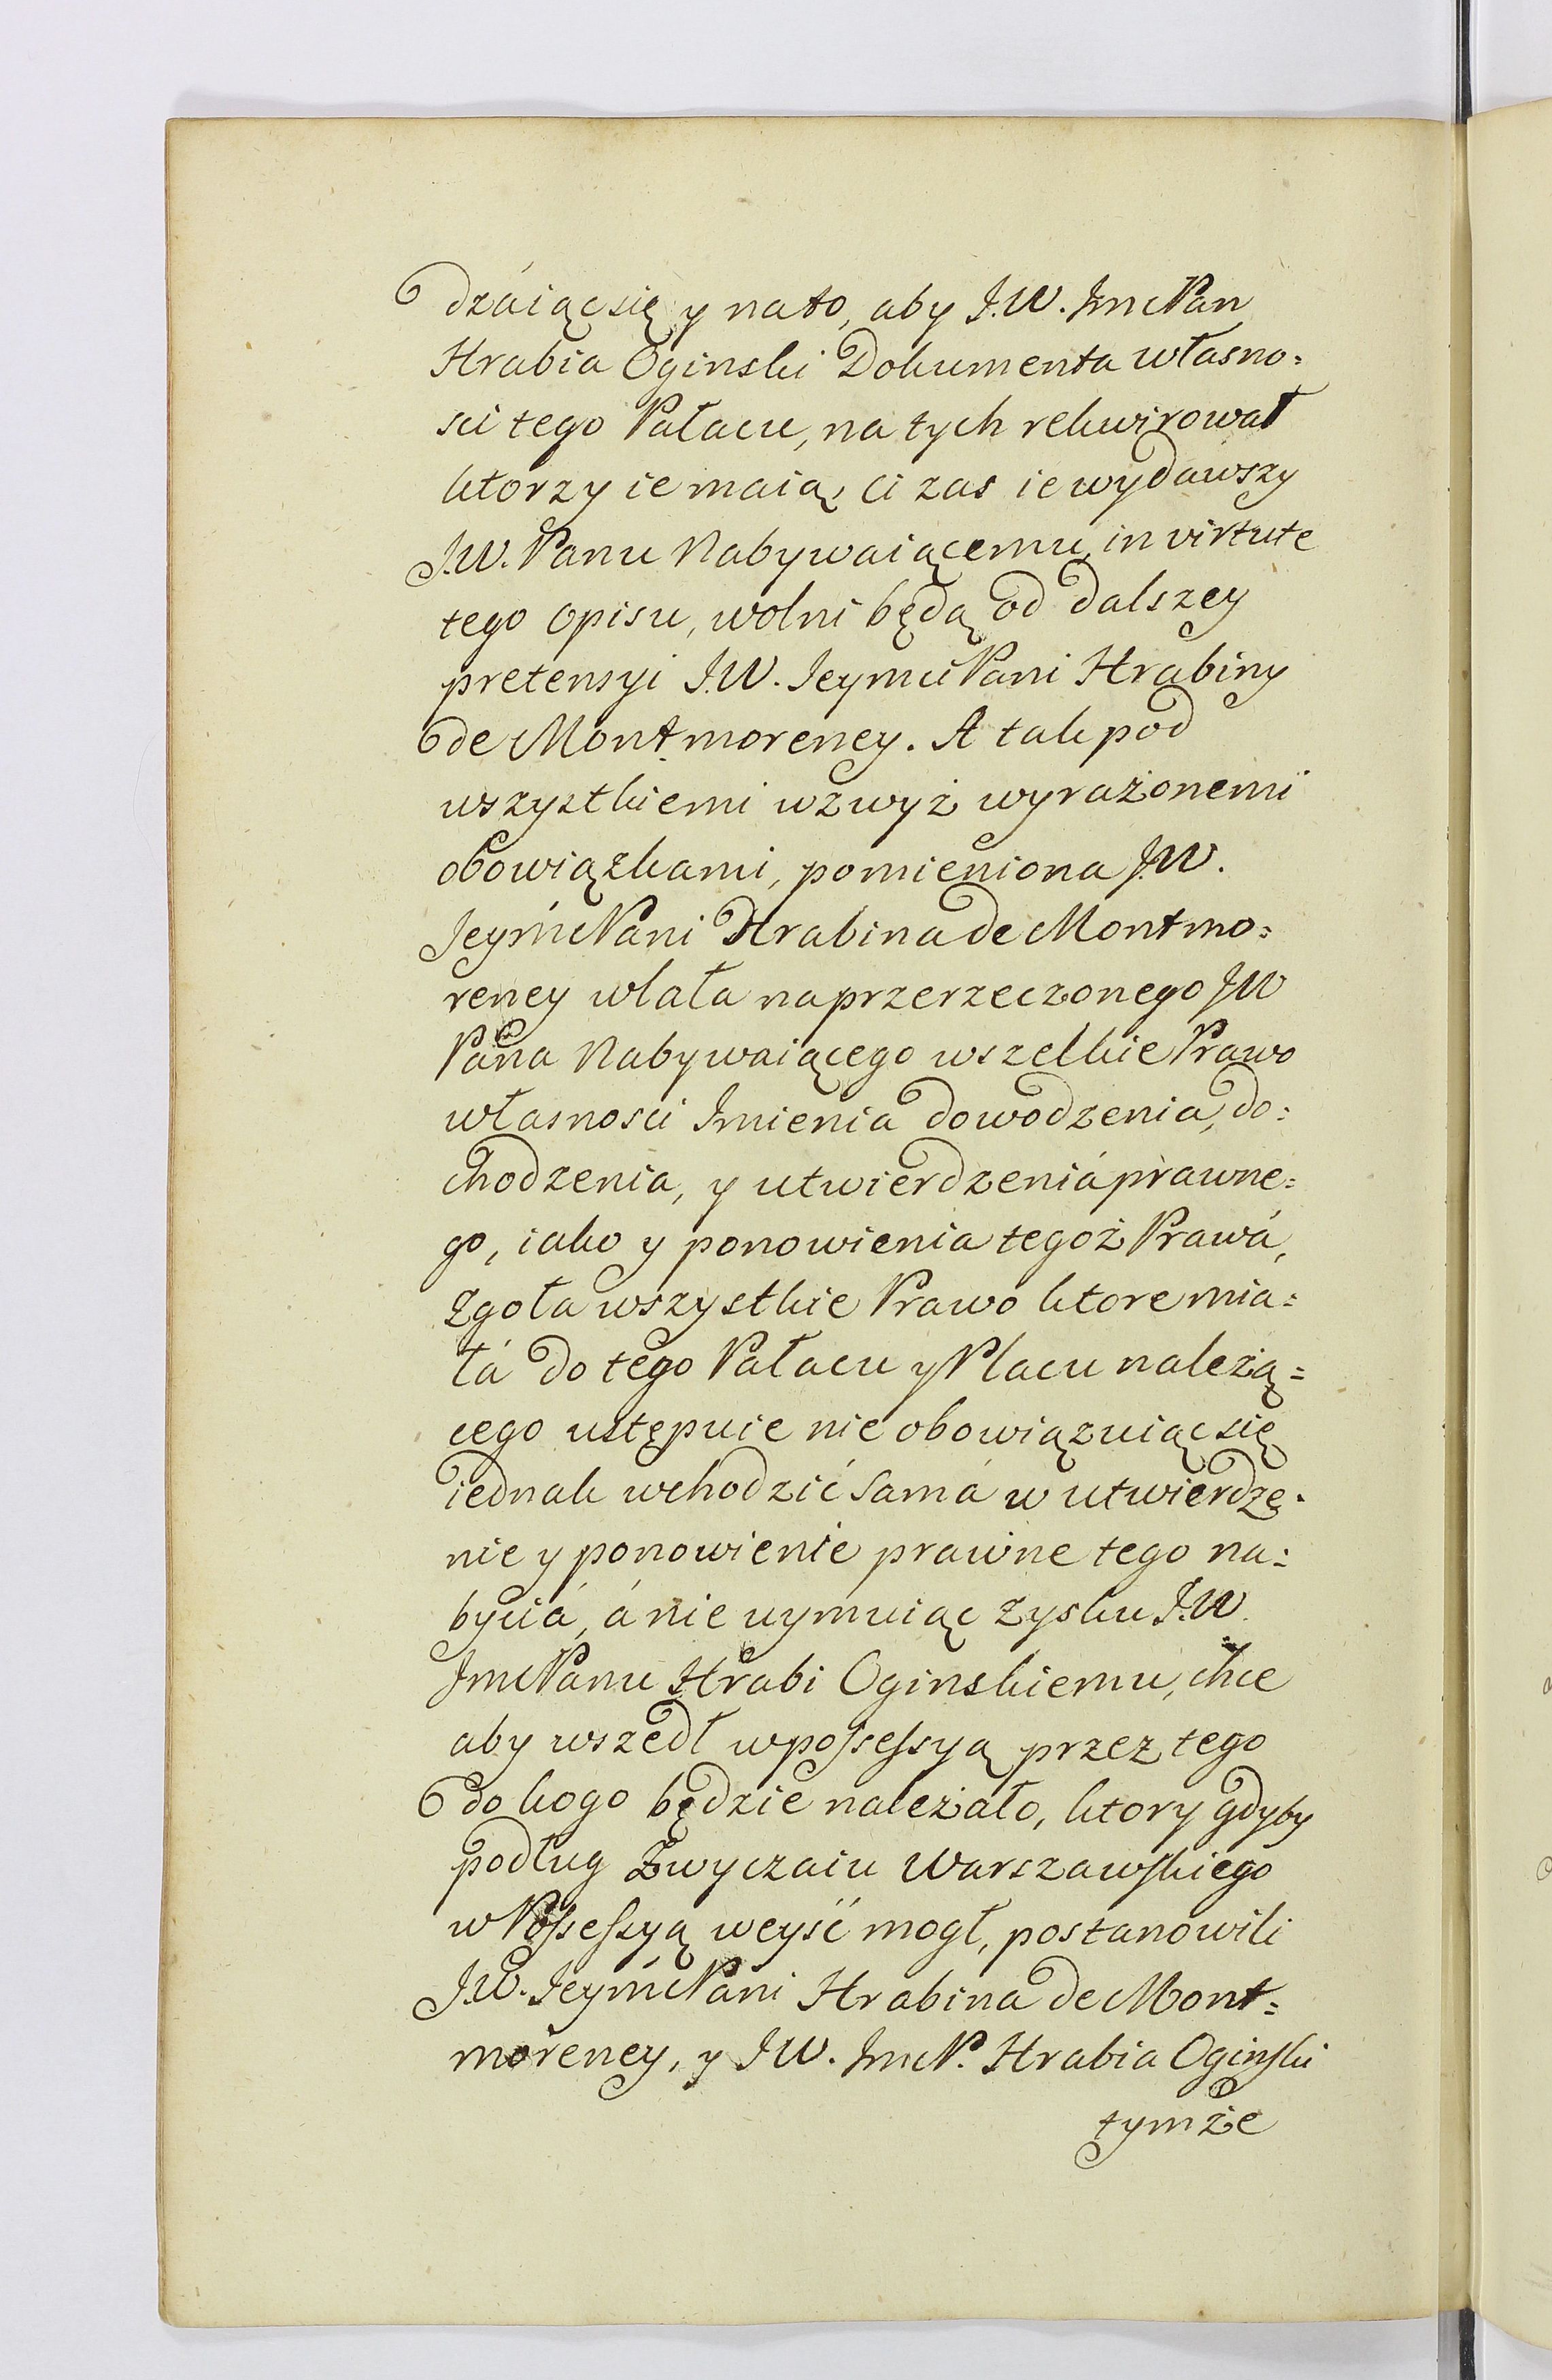 dzáiąc się y na to, aby J.W. Jmć Pan
Hrabia Oginski Dokumenta własno=
sci tego Pałacu, na tych rekwirował
ktorzy ie maią, Ci zas ie wydawszy
J.W. Panu Nabywaiącemu, in virtute
tego opisu, wolni będą od dalszey
pretensyi J.W. Jeymci Pani Hrabiny
de Montmorency. A tak pod
wszystkiemi wzwyż wyrażonemi
obowiązkami, pomieniona J.W.
Jeymć Pani Hrabina de Montmo=
rency wlała na przerzeczonego JW
Pana Nabywaiącego wszelkie Prawo
własnosci Jmienia dowodzenia, do=
chodzenia, y utwierdzeniá prawne=
go, iako y ponowienia tegoż Prawá,
Zgoła wszystkie Prawo ktore mia=
łá do tego Pałacu y Placu należą=
cego ustępuie nie obowiązuiąc się
iednak wchodzić samá w utwierdzę=
nie y ponowienie prawne tego na=
byciá, á nie uymuiąc zysku J.W.
Jmć Panu Hrabi Oginskiemu, chce
aby wszedł w possessyą przez tego
do kogo będzie należało, ktory gdyby
podług Zwyczaiu Warszawskiego
w Possessyą weyść mogł, postanowili
J.W. Jeymć Pani Hrabina de Mont=
morency, y JW. Jmć P. Hrabia Oginski
tym że